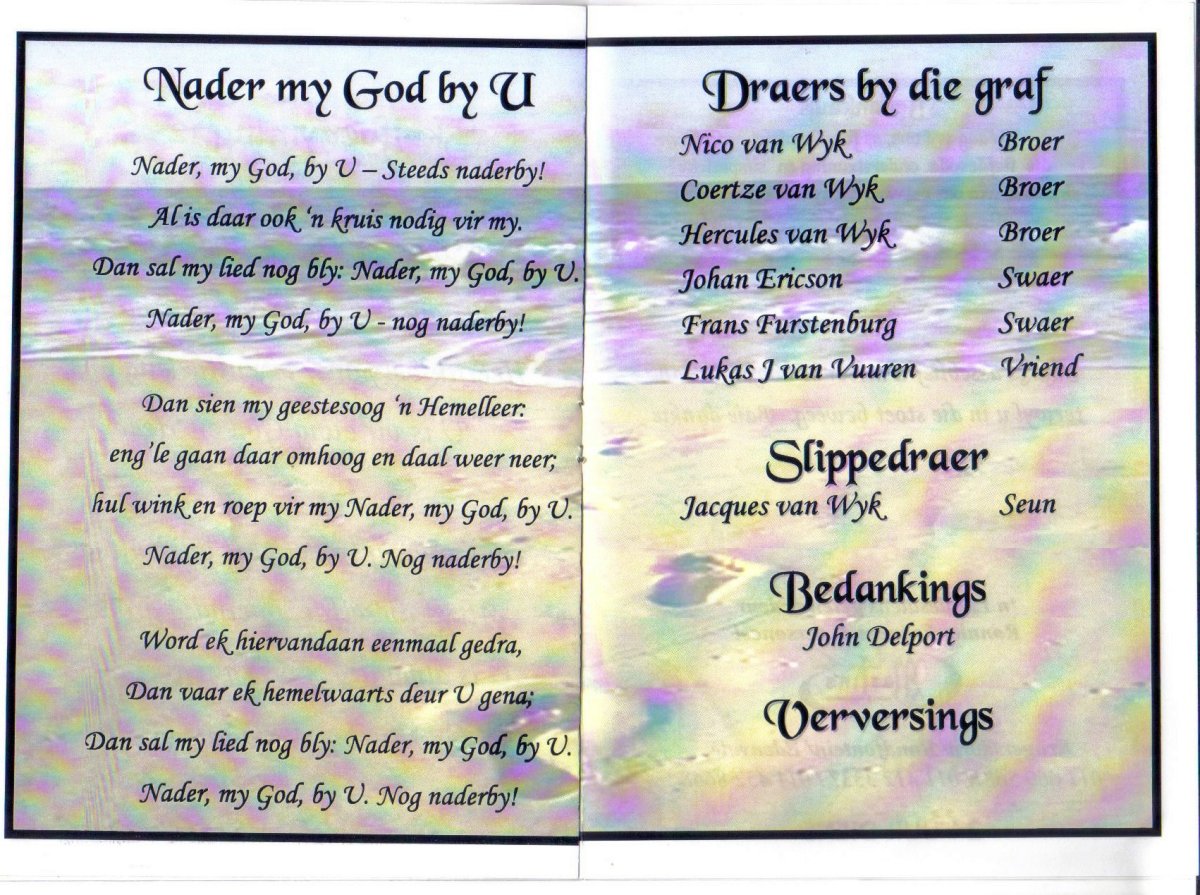 Nader my God by U
Nader, my God, by U – Steeds naderby!
Al is daar ook ‘n kruis nodig vir my.
Dan sal my lied nog bly: Nader, my God, by U.
Nader, my God, by U - nog naderby!
Dan sien my geestesoog ‘n Hemelleer:
eng’le gaan daar omhoog en daal weer neer;
hul wink en roep vir my Nader, my God, by U.
Nader, my God, by U. Nog naderby!
Word ek hiervandaan eenmaal gedra,
Dan vaar ek hemelwaarts deur U gena;
Dan sal my lied nog bly: Nader, my God, by U.
Nader, my God, by U. Nog naderby!
Draers by die graf
Nico van Wyk Broer
Coertze van Wyk Broer
Hercules van Wyk Broer
Johan Ericson Swaer
Frans Furstenburg Swaer
Lukas J van Vuuren Vriend
Slippedraer
Jacques van Wyk Seun
Bedankings
John Delport
Verversings